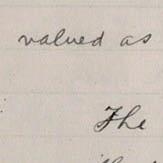 valued as
The